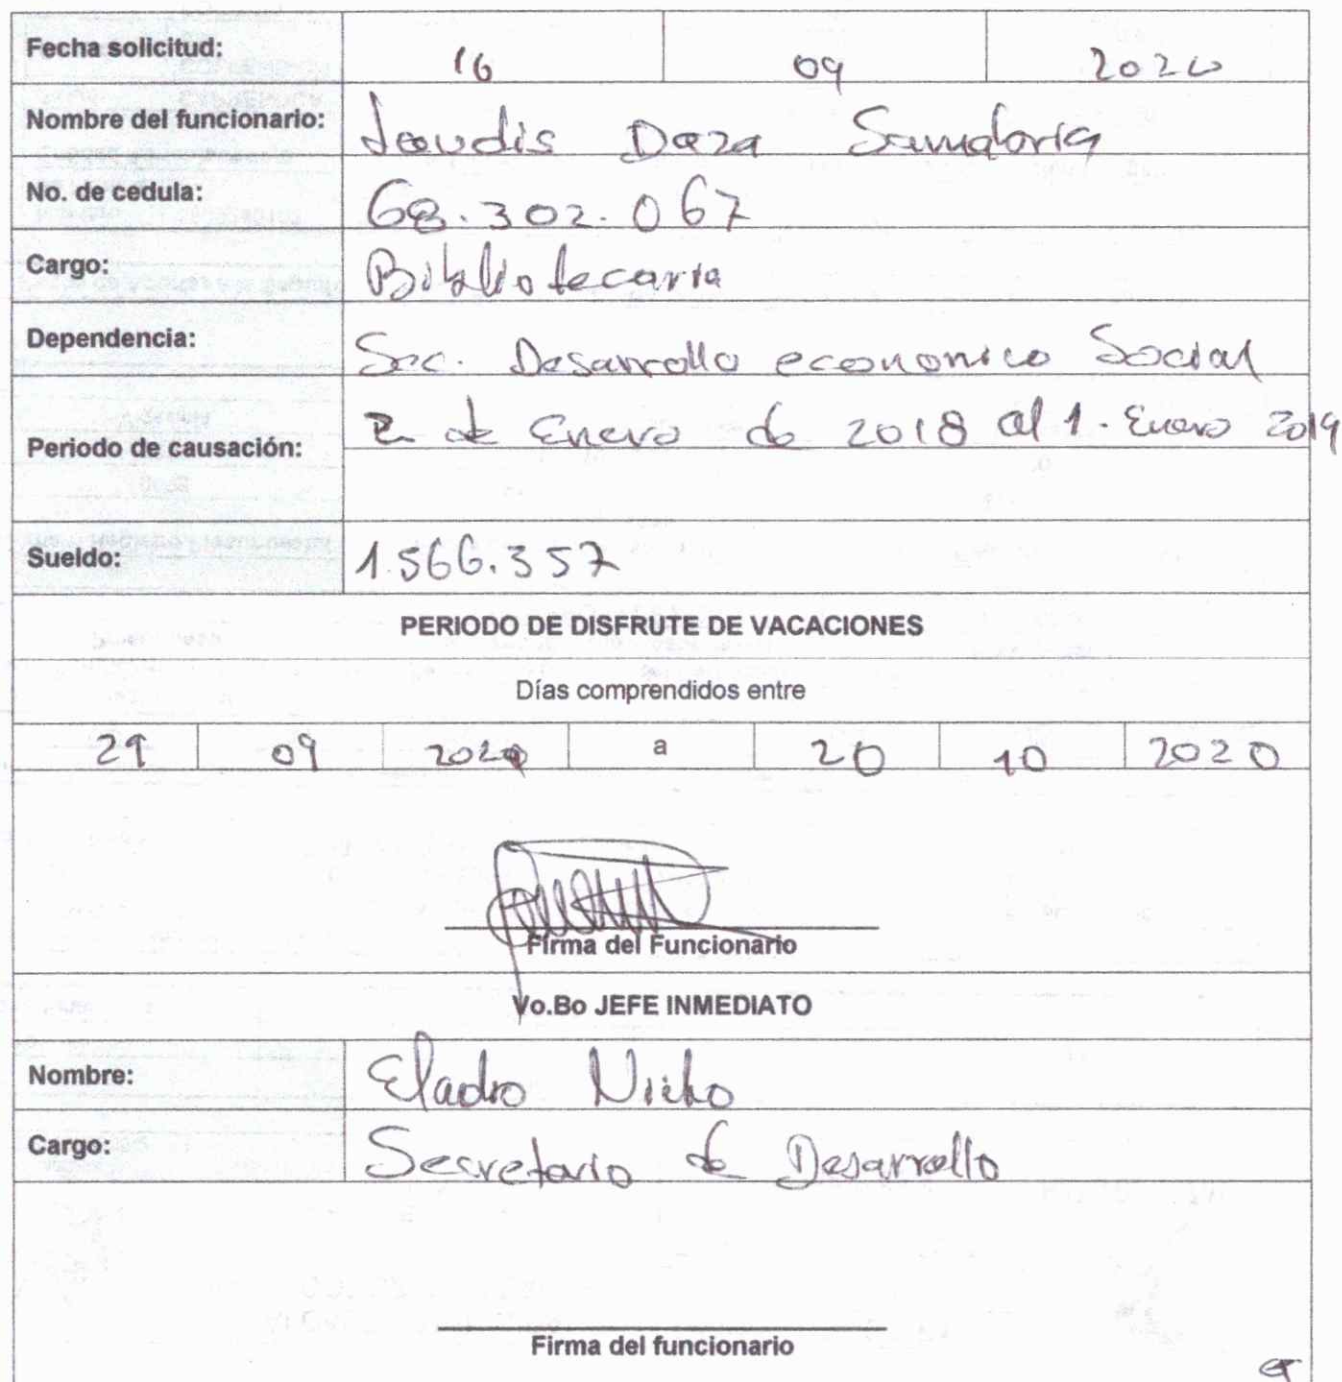 Fecha solicitud: 16 09 2020
Nombre del funcionario: Daza
No. de cedula: 68.302.067
Cargo: Bibliotecaria
Dependencia: Sec. Desarrollo economico Social
Periodo de causación: 2 de Enero de 2018 al 1. Enero 2019
Sueldo: 1.566.357
PERIODO DE DISFRUTE DE VACACIONES
Días comprendidos entre
29 09 2020 a 20 10 2020
Firma del Funcionario
Vo.Bo JEFE INMEDIATO
Nombre:
Cargo: Secretario de Desarrollo
Firma del funcionario